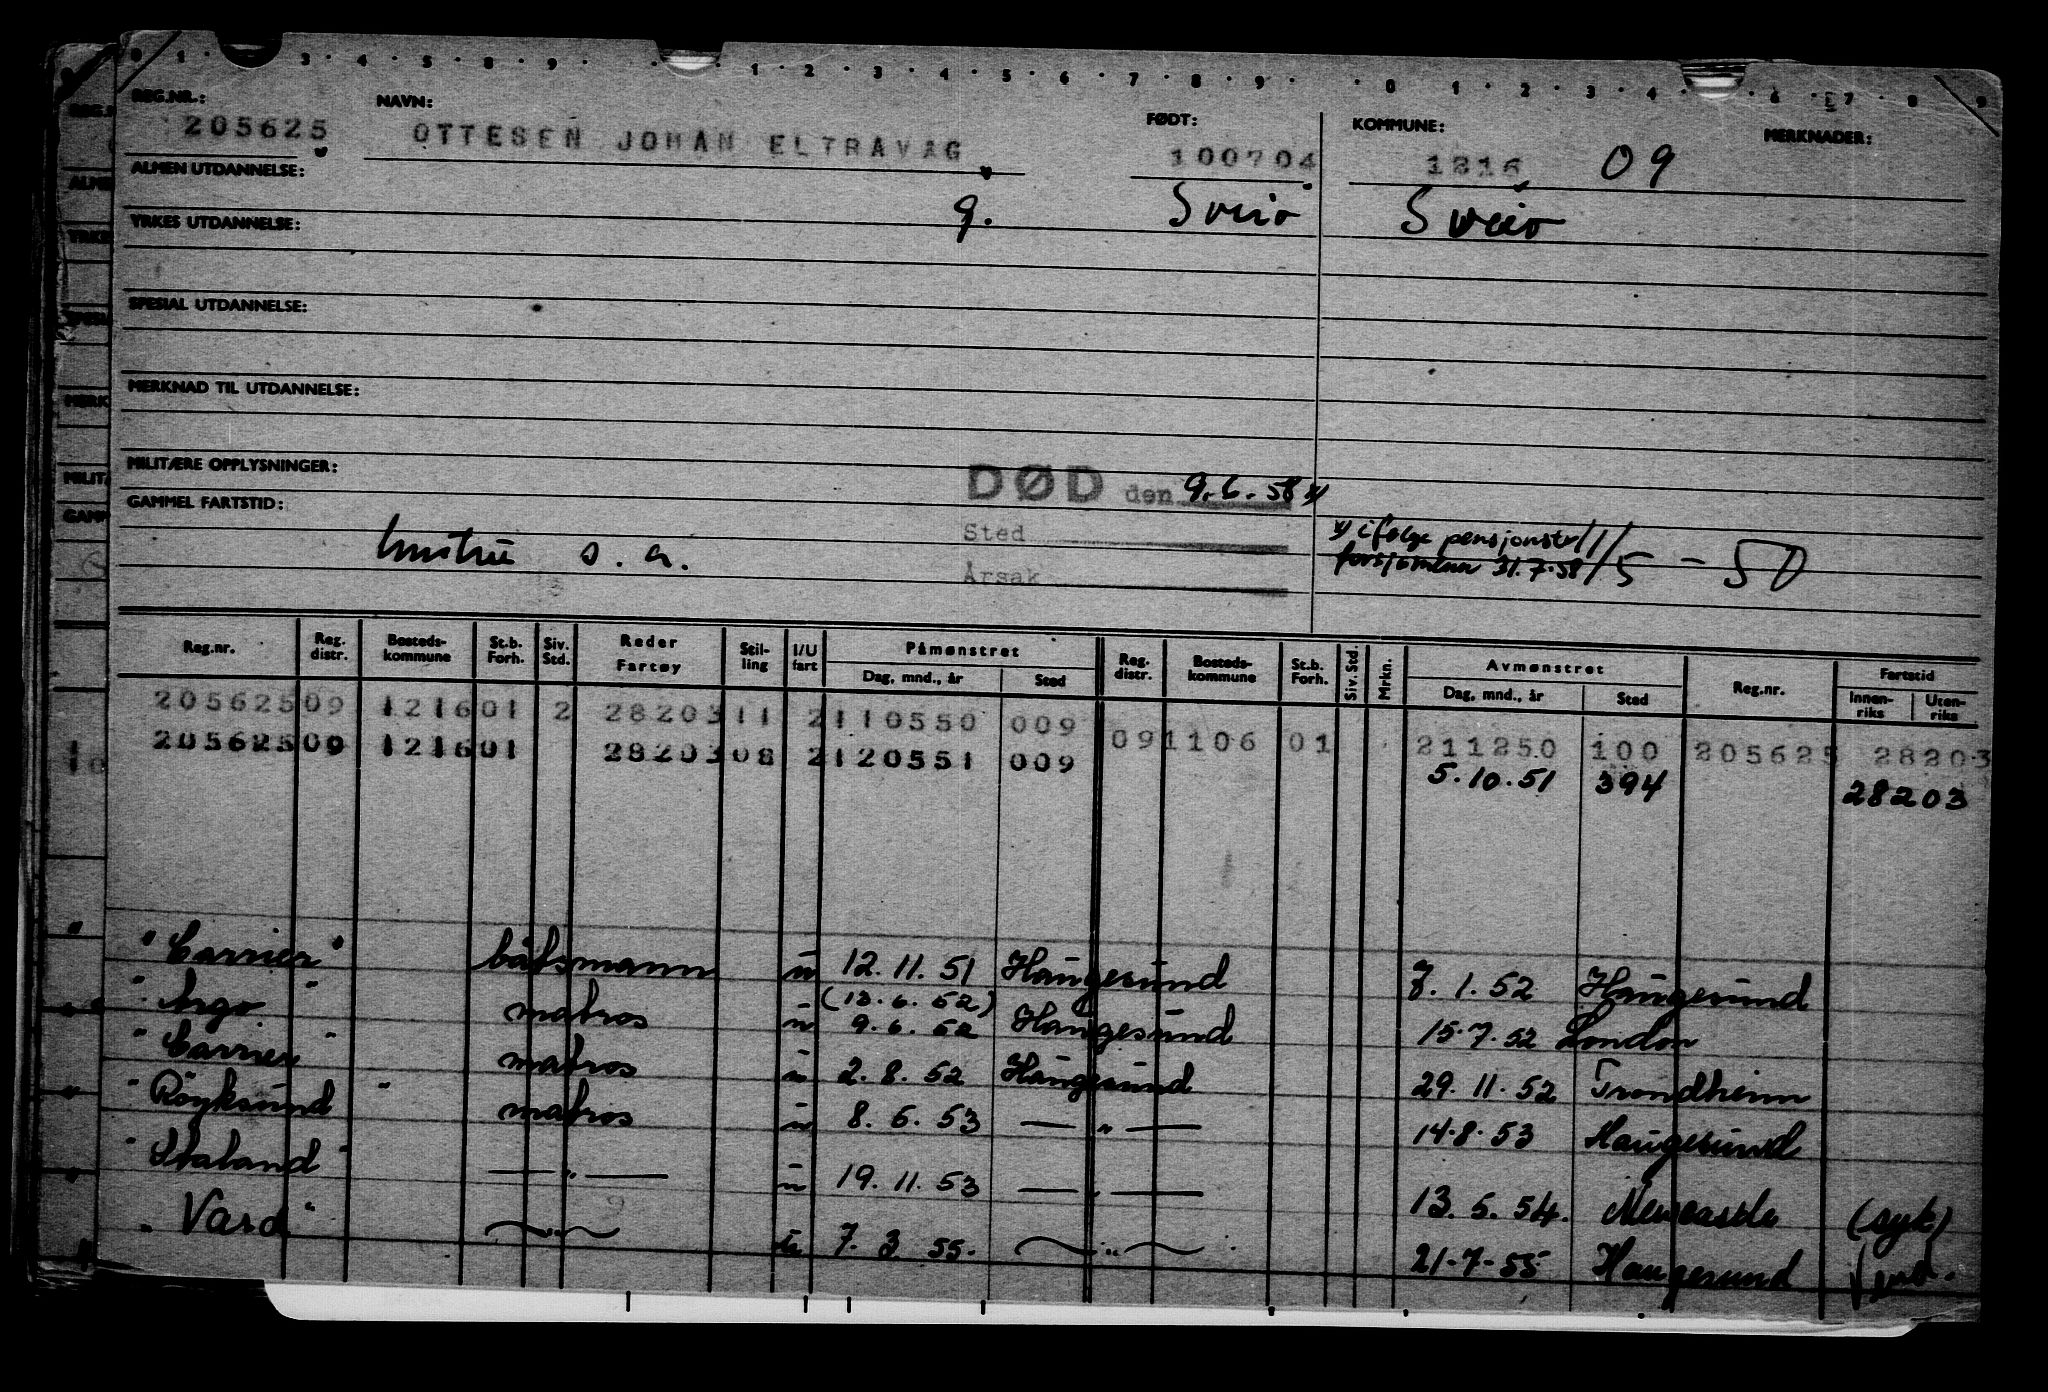 REG.NR.: NAVN: FØDT: KOMMUNE: MERKNADER:
205625 OTTESEN JOHAN ELTRAVAG 100704 1216 09
ALMEN UTDANNELSE:
g. Sveio Sveio
YRKES UTDANNELSE:
SPESIAL UTDANNELSE:
MERKNAD TIL UTDANNELSE:
MILITÆRE OPPLYSNINGER:
DØD den 9.6.58 x)
GAMMEL FARTSTID:
Sted
x) ifølge pensjonstr
hustru s.a.
forsjømenn 31.7.58
11/5-50
Årsak
Reg.nr. Reg. distr. Bosteds-kommune St.b. Forh. Siv. Std. Reder Fartøy Stil-ling I/U fart Påmønstret Dag, mnd., år Sted Reg. distr. Bosteds-kommune St.b. Forh. Siv. Std. Mrkn. Avmønstret Dag, mnd., år Sted Reg.nr. Fartstid Innen-riks Uten-riks
205625 09 1216 01 2 28203 11 2 110550 009 09 1106 01 211250 100 205625 28203
205625 09 1216 01 28203 08 2 120551 009 5.10.51 394 28203
"Carrier" båtsmann u 12.11.51 Haugesund 7.1.52 Haugesund
(13.6.52)
"Argo" matros u 9.6.52 Haugesund 15.7.52 London
"Carrier" matros u 2.8.52 Haugesund 29.11.52 Trondheim
"Röyksund" matros u 8.6.53 —"— 14.8.53 Haugesund
"Staland" —"— u 19.11.53 —"— 13.5.54. Newcastle (syk)
"Vard" —"— u 7.3.55. —"— 21.7.55 Haugesund